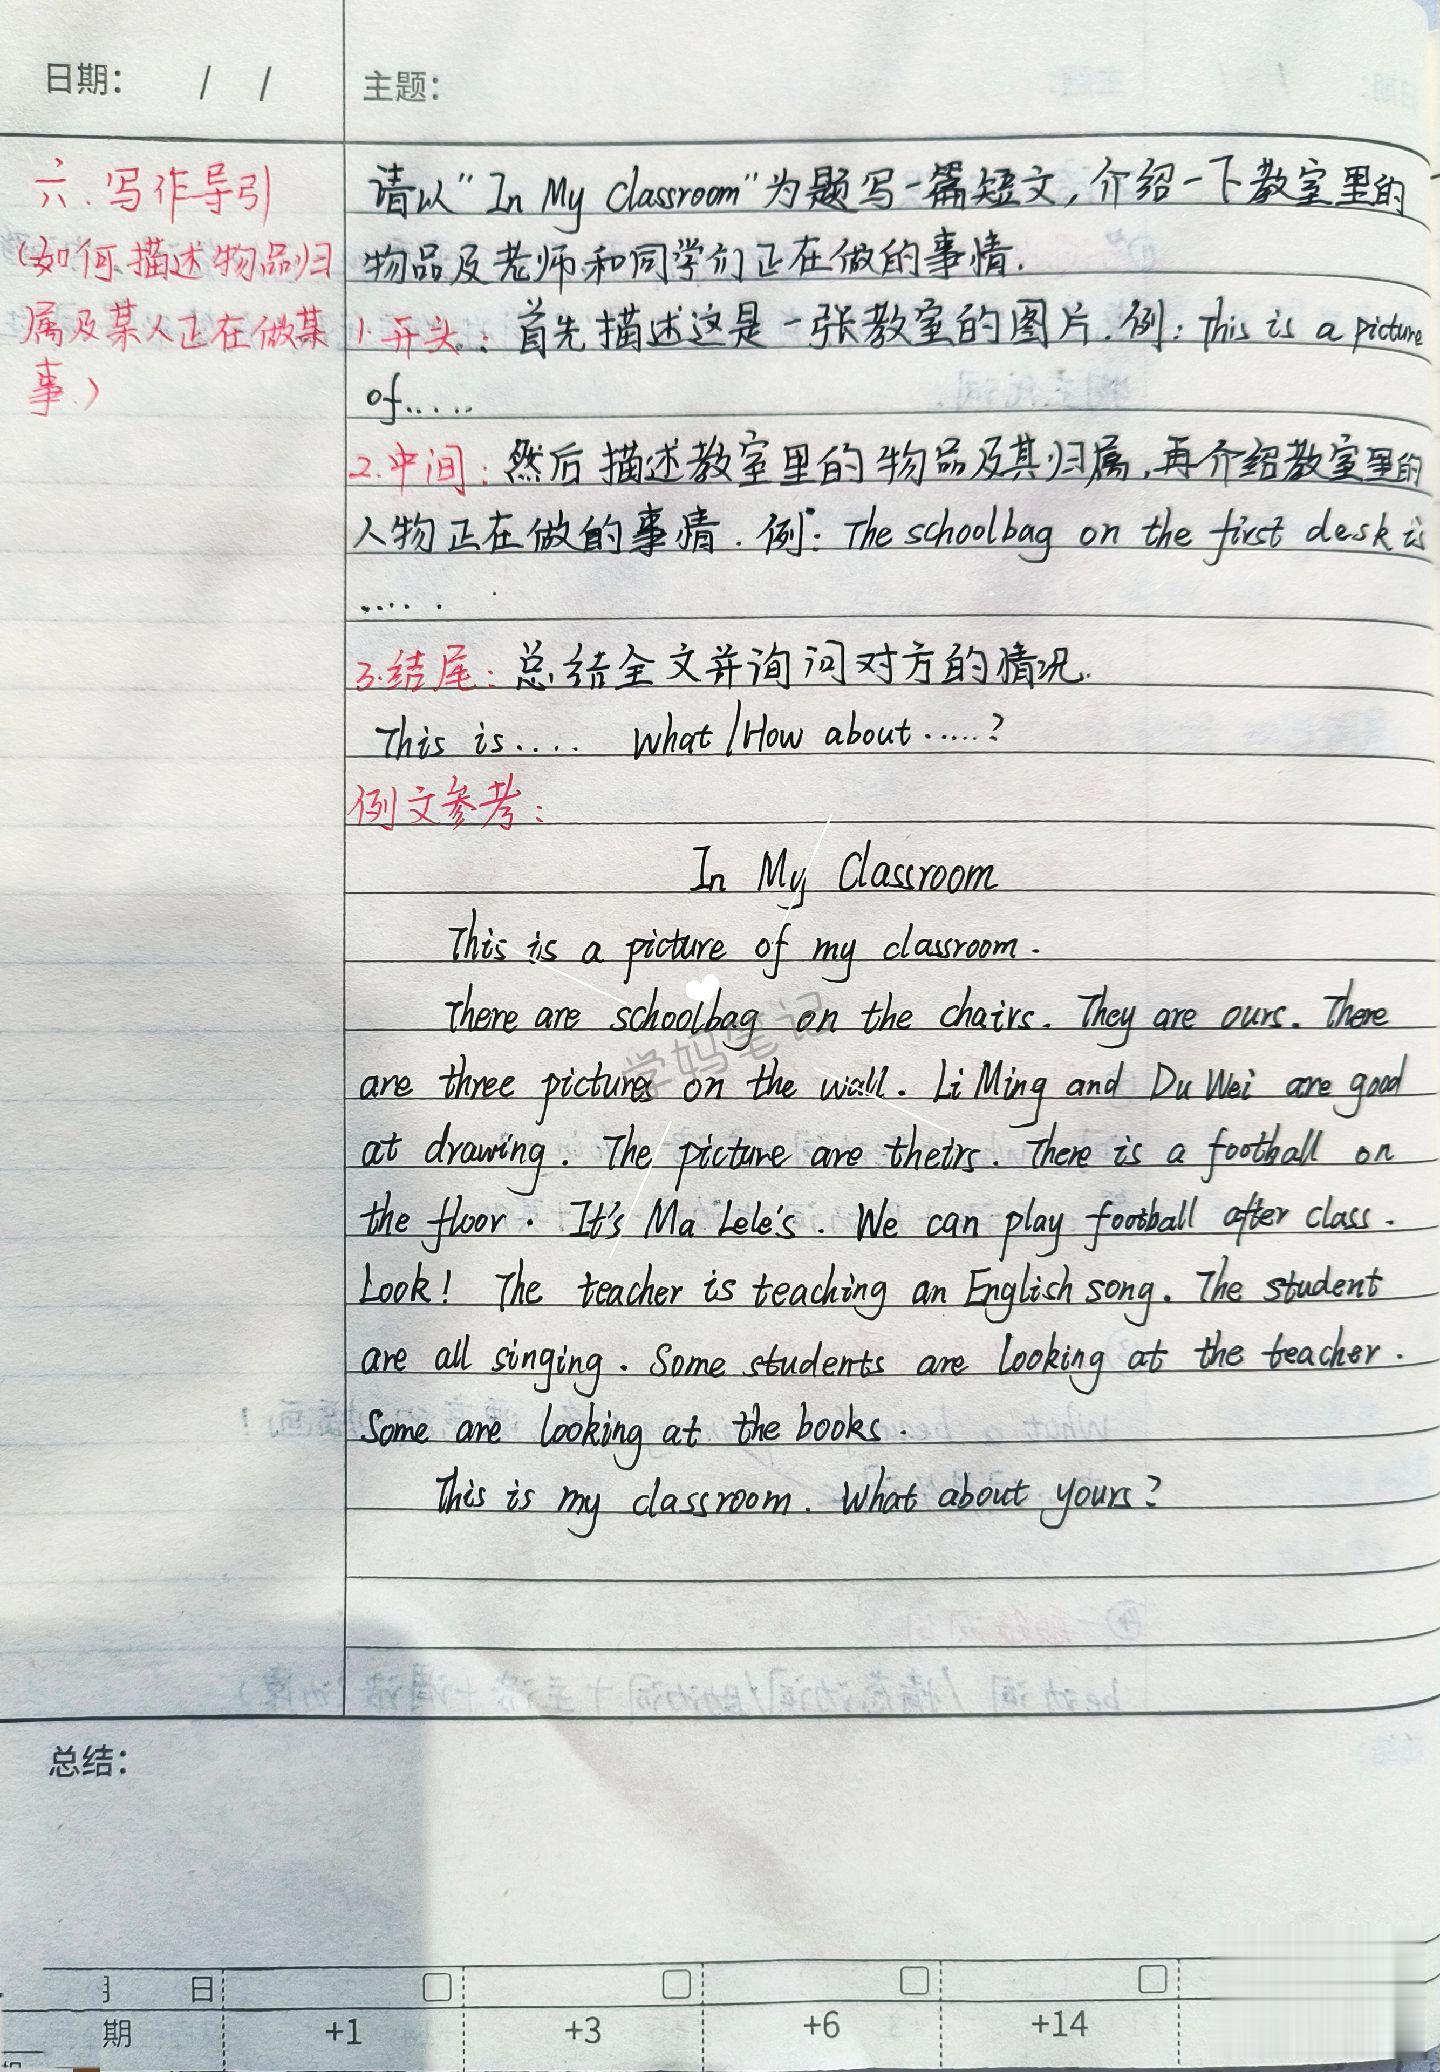 日期： / /
主题：
六.写作导引
(如何描述物品归
属及某人正在做某
事.)
请以"In My Classroom"为题写一篇短文,介绍一下教室里的
物品及老师和同学们正在做的事情.
1.开头：首先描述这是一张教室的图片.例：This is a picture
of.....
2.中间：然后描述教室里的物品及其归属,再介绍教室里的
人物正在做的事情.例：The schoolbag on the first desk is
.....
3.结尾：总结全文并询问对方的情况.
This is.... What/How about.....?
例文参考：
In My Classroom
This is a picture of my classroom.
There are schoolbag on the chairs. They are ours. There
are three pictures on the wall. Li Ming and Du Wei are good
at drawing. The picture are theirs. There is a football on
the floor. It's Ma Lele's. We can play football after class.
Look! The teacher is teaching an English song. The student
are all singing. Some students are looking at the teacher.
Some are looking at the books.
This is my classroom. What about yours?
学妈笔记
总结：
日
期 +1 +3 +6 +14